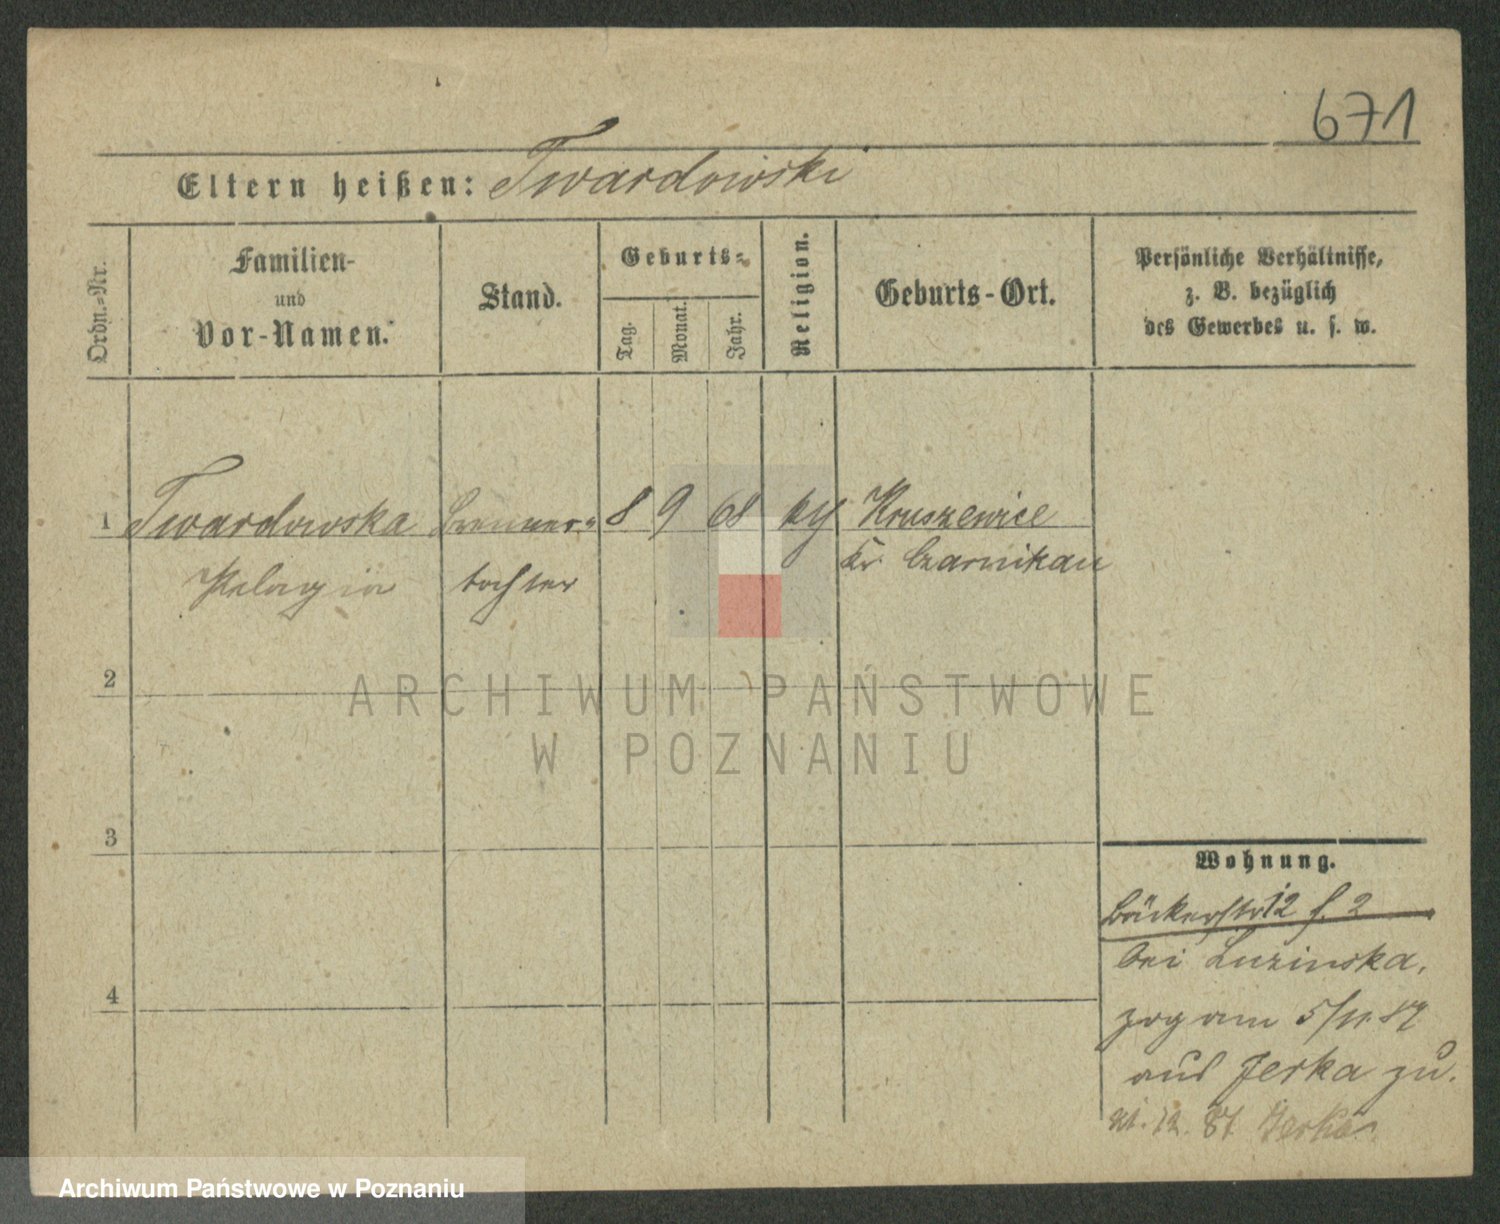 671
Eltern heißen: Twardowski
Ordn.-Nr.
Familien-
und
Vor-Namen.
Stand.
Geburts-
Tag.
Monat.
Jahr.
Religion.
Geburts-Ort.
Persönliche Verhältnisse,
z. B. bezüglich
des Gewerbes u. s. w.
1 Twardowska Brenner- 8 9 68 ky Kruszewice
Kr Czarnikau
Pelagia tochter
2
3
4
Wohnung.
Bäckerstr 12 f. 2
bei Luzinska,
zog am 5/11.87
aus Jerka zu.
12. 87 Jerka
ARCHIWUM PAŃSTWOWE
W POZNANIU
Archiwum Państwowe w Poznaniu